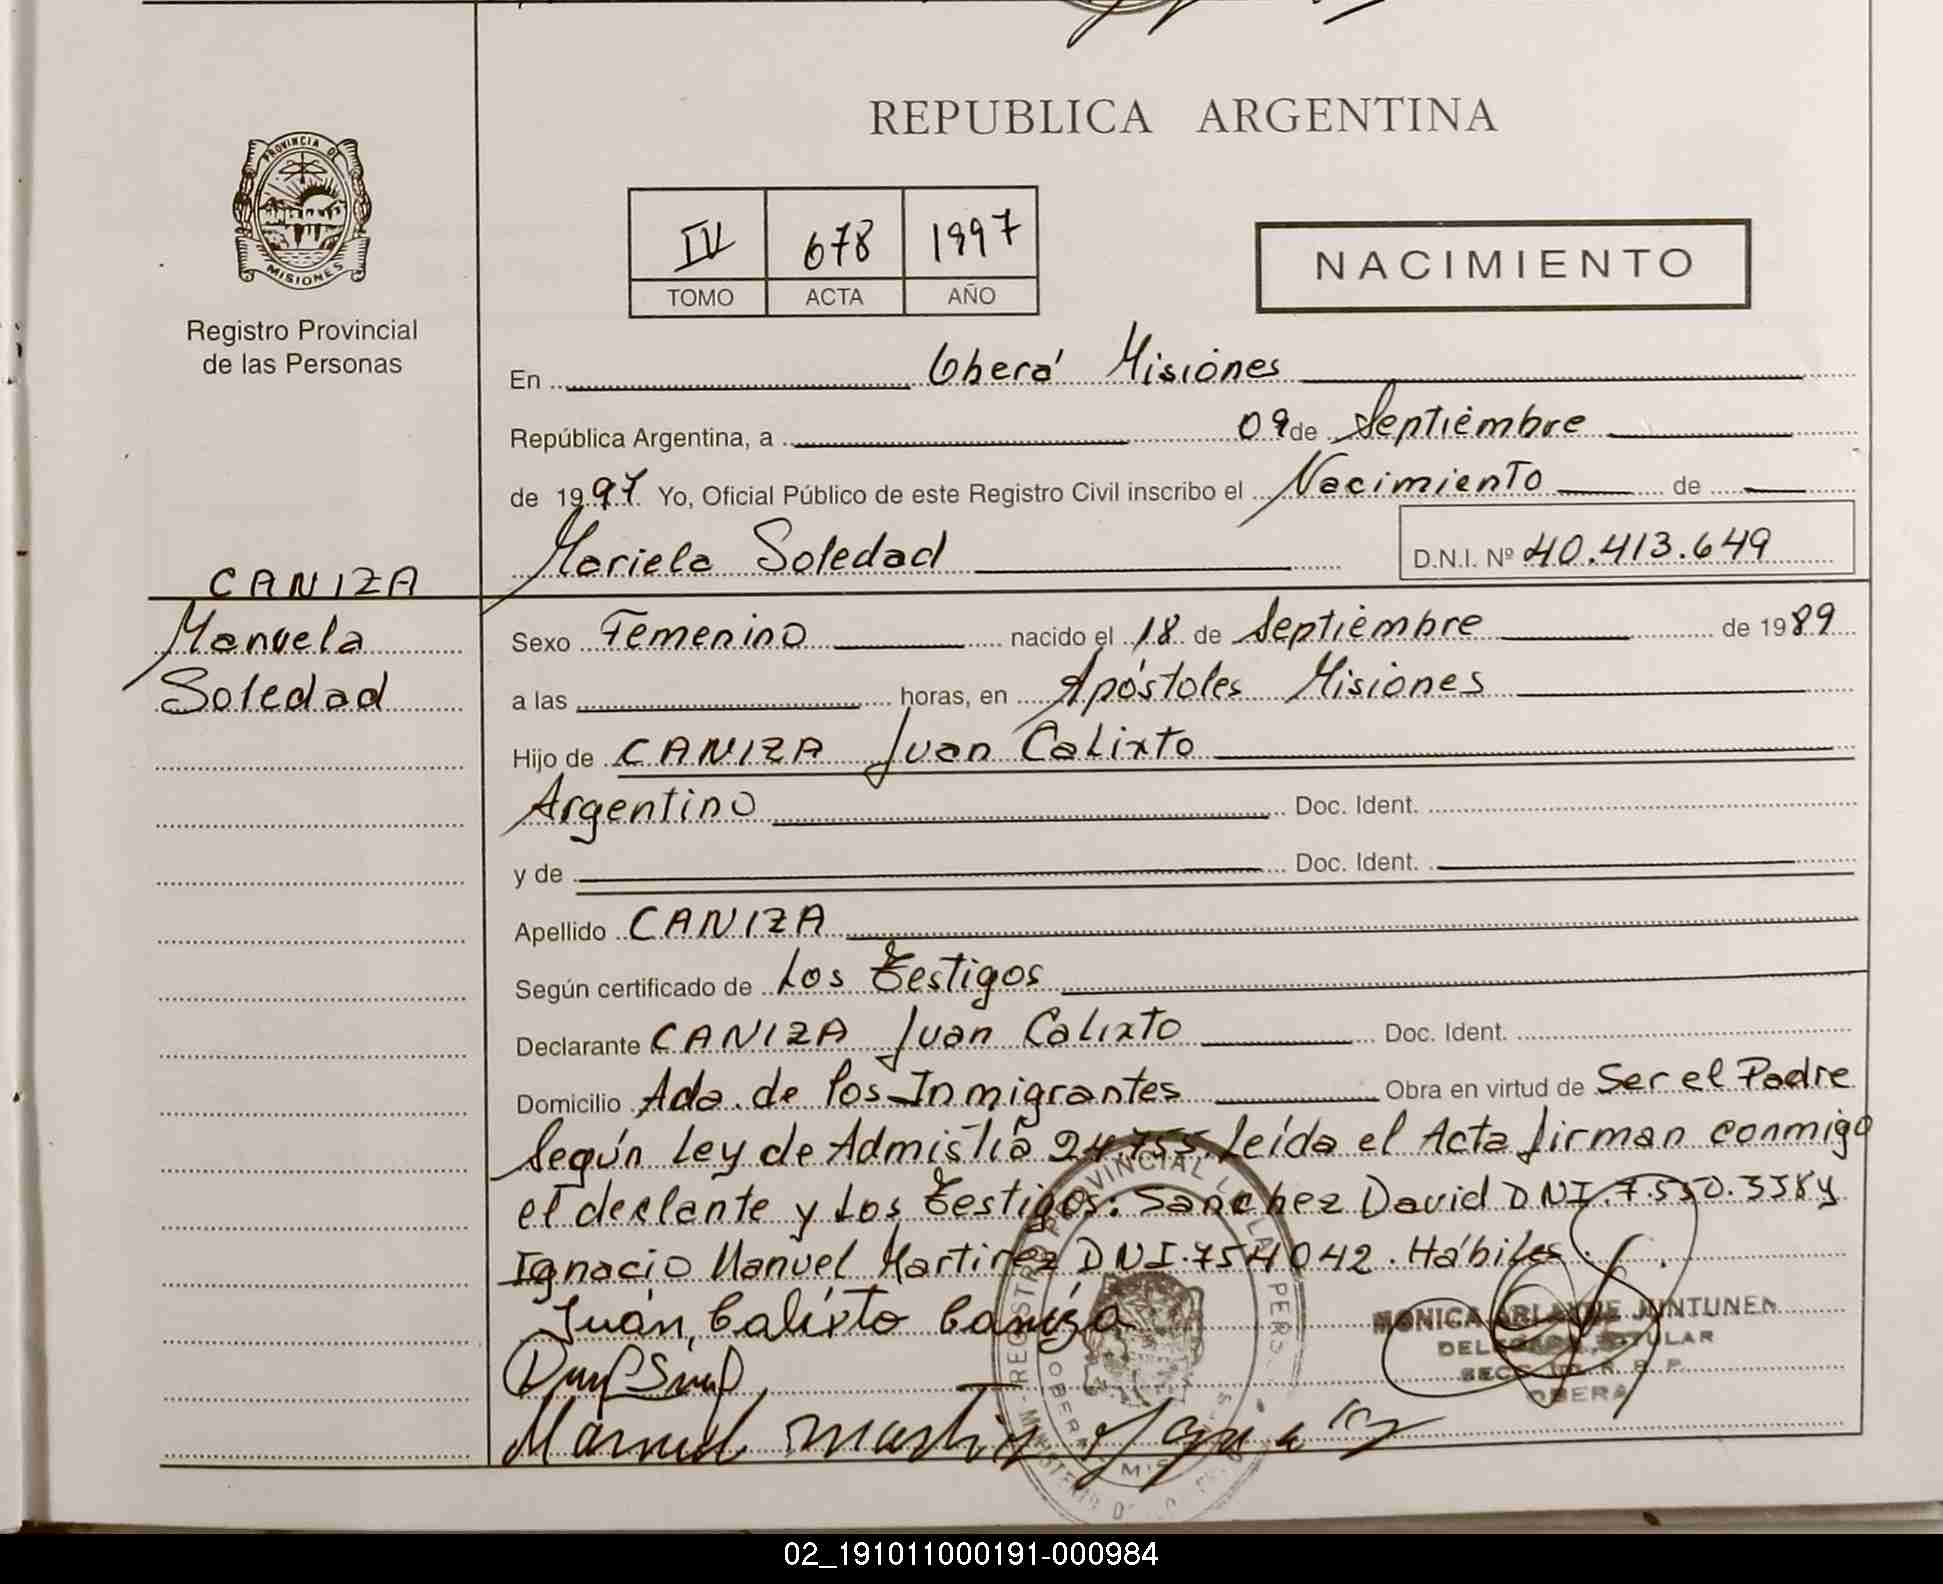 REPUBLICA ARGENTINA
PROVINCIA DE
MISIONES
Registro Provincial
de las Personas
IV 678 1997
TOMO ACTA AÑO
NACIMIENTO
En Oberá Misiones
República Argentina, a 09 de Septiembre
de 1997 Yo, Oficial Público de este Registro Civil inscribo el Nacimiento de
Mariela Soledad D.N.I. Nº 40.413.649
CANIZA
Manuela
Soledad
Sexo Femenino nacido el 18 de Septiembre de 1989
a las horas, en Apóstoles Misiones
Hijo de CANIZA Juan Calixto
Argentino Doc. Ident.
y de Doc. Ident.
Apellido CANIZA
Según certificado de Los Testigos
Declarante CANIZA Juan Calixto Doc. Ident.
Domicilio Ada. de los Inmigrantes Obra en virtud de Ser el Padre
Según Ley de Admistia 24.755. Leída el Acta firman conmigo
el declante y Los Testigos: Sanchez David DNI.7.550.338 y
Ignacio Manuel Martinez DNI.754042. Hábiles.
Juan, Calixto Caniza
MONICA JUNTUNEN
OBERA
Manuel
REGISTRO PROVINCIAL
OBERA
02_191011000191-000984